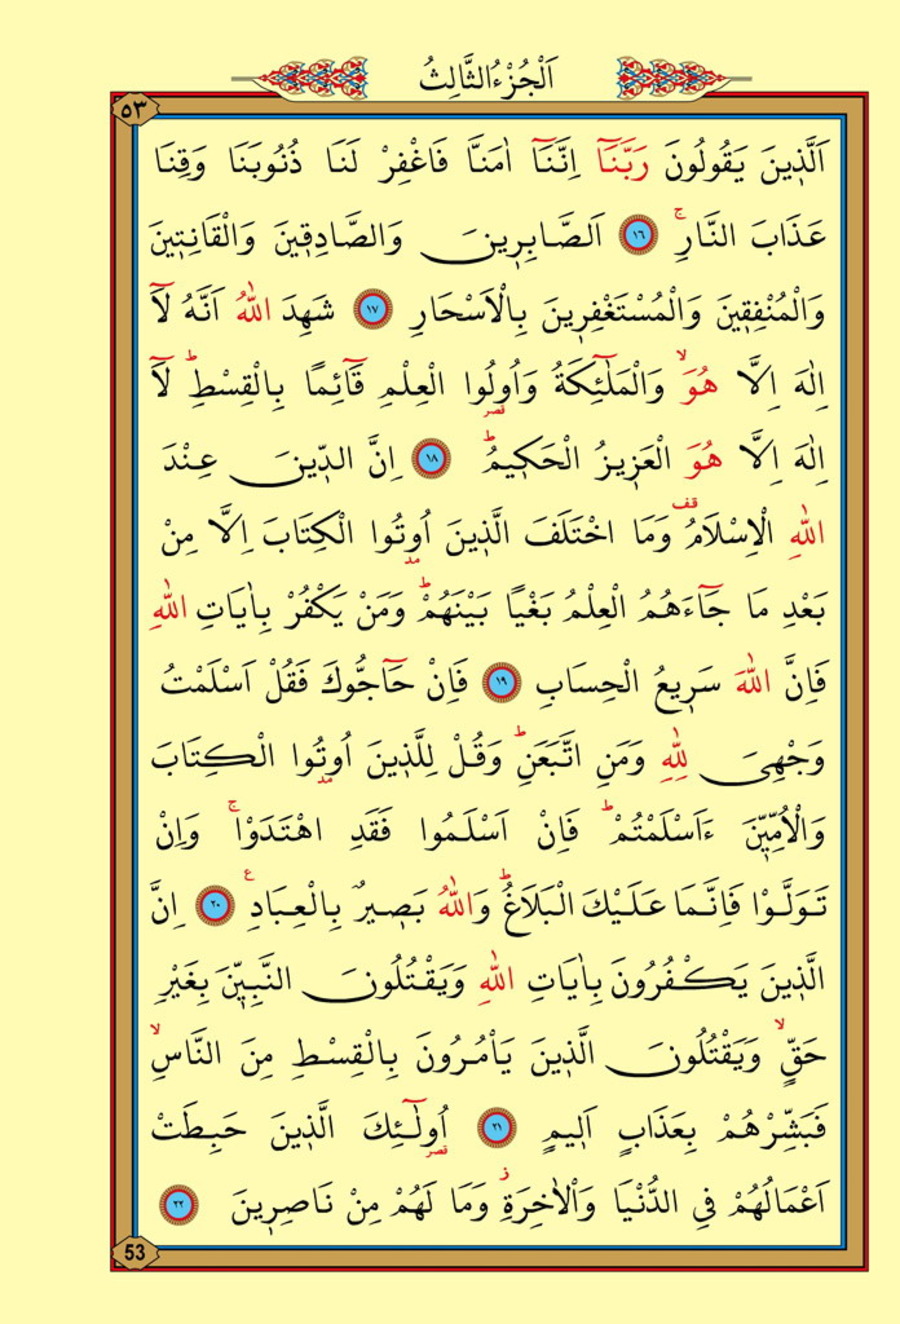 اَلْجُزْءُ الثَّالِثُ
٥٣
اَلَّذٖينَ يَقُولُونَ رَبَّنَٓا اِنَّنَٓا اٰمَنَّا فَاغْفِرْ لَنَا ذُنُوبَنَا وَقِنَا
عَذَابَ النَّارِۚ ١٦ اَلصَّابِرٖينَ وَالصَّادِقٖينَ وَالْقَانِتٖينَ
وَالْمُنْفِقٖينَ وَالْمُسْتَغْفِرٖينَ بِالْاَسْحَارِ ١٧ شَهِدَ اللّٰهُ اَنَّهُ لَٓا
اِلٰهَ اِلَّا هُوَۙ وَالْمَلٰٓئِكَةُ وَاُو۬لُوا الْعِلْمِ قَٓائِمًا بِالْقِسْطِؕ لَٓا
اِلٰهَ اِلَّا هُوَ الْعَزٖيزُ الْحَكٖيمُؕ ١٨ اِنَّ الدّٖينَ عِنْدَ
اللّٰهِ الْاِسْلَامُ قف وَمَا اخْتَلَفَ الَّذٖينَ اُو۫تُوا الْكِتَابَ اِلَّا مِنْ
بَعْدِ مَا جَٓاءَهُمُ الْعِلْمُ بَغْيًا بَيْنَهُمْؕ وَمَنْ يَكْفُرْ بِاٰيَاتِ اللّٰهِ
فَاِنَّ اللّٰهَ سَرٖيعُ الْحِسَابِ ١٩ فَاِنْ حَٓاجُّوكَ فَقُلْ اَسْلَمْتُ
وَجْهِيَ لِلّٰهِ وَمَنِ اتَّبَعَنِؕ وَقُلْ لِلَّذٖينَ اُو۫تُوا الْكِتَابَ
وَالْاُمِّيّٖنَ ءَاَسْلَمْتُمْؕ فَاِنْ اَسْلَمُوا فَقَدِ اهْتَدَوْاۚ وَاِنْ
تَوَلَّوْا فَاِنَّمَا عَلَيْكَ الْبَلَاغُؕ وَاللّٰهُ بَصٖيرٌ بِالْعِبَادِ ع ٢٠ اِنَّ
الَّذٖينَ يَكْفُرُونَ بِاٰيَاتِ اللّٰهِ وَيَقْتُلُونَ النَّبِيّٖنَ بِغَيْرِ
حَقٍّۙ وَيَقْتُلُونَ الَّذٖينَ يَاْمُرُونَ بِالْقِسْطِ مِنَ النَّاسِۙ
فَبَشِّرْهُمْ بِعَذَابٍ اَلٖيمٍ ٢١ اُو۬لٰٓئِكَ الَّذٖينَ حَبِطَتْ
اَعْمَالُهُمْ فِي الدُّنْيَا وَالْاٰخِرَةِؗ وَمَا لَهُمْ مِنْ نَاصِرٖينَ ٢٢
53